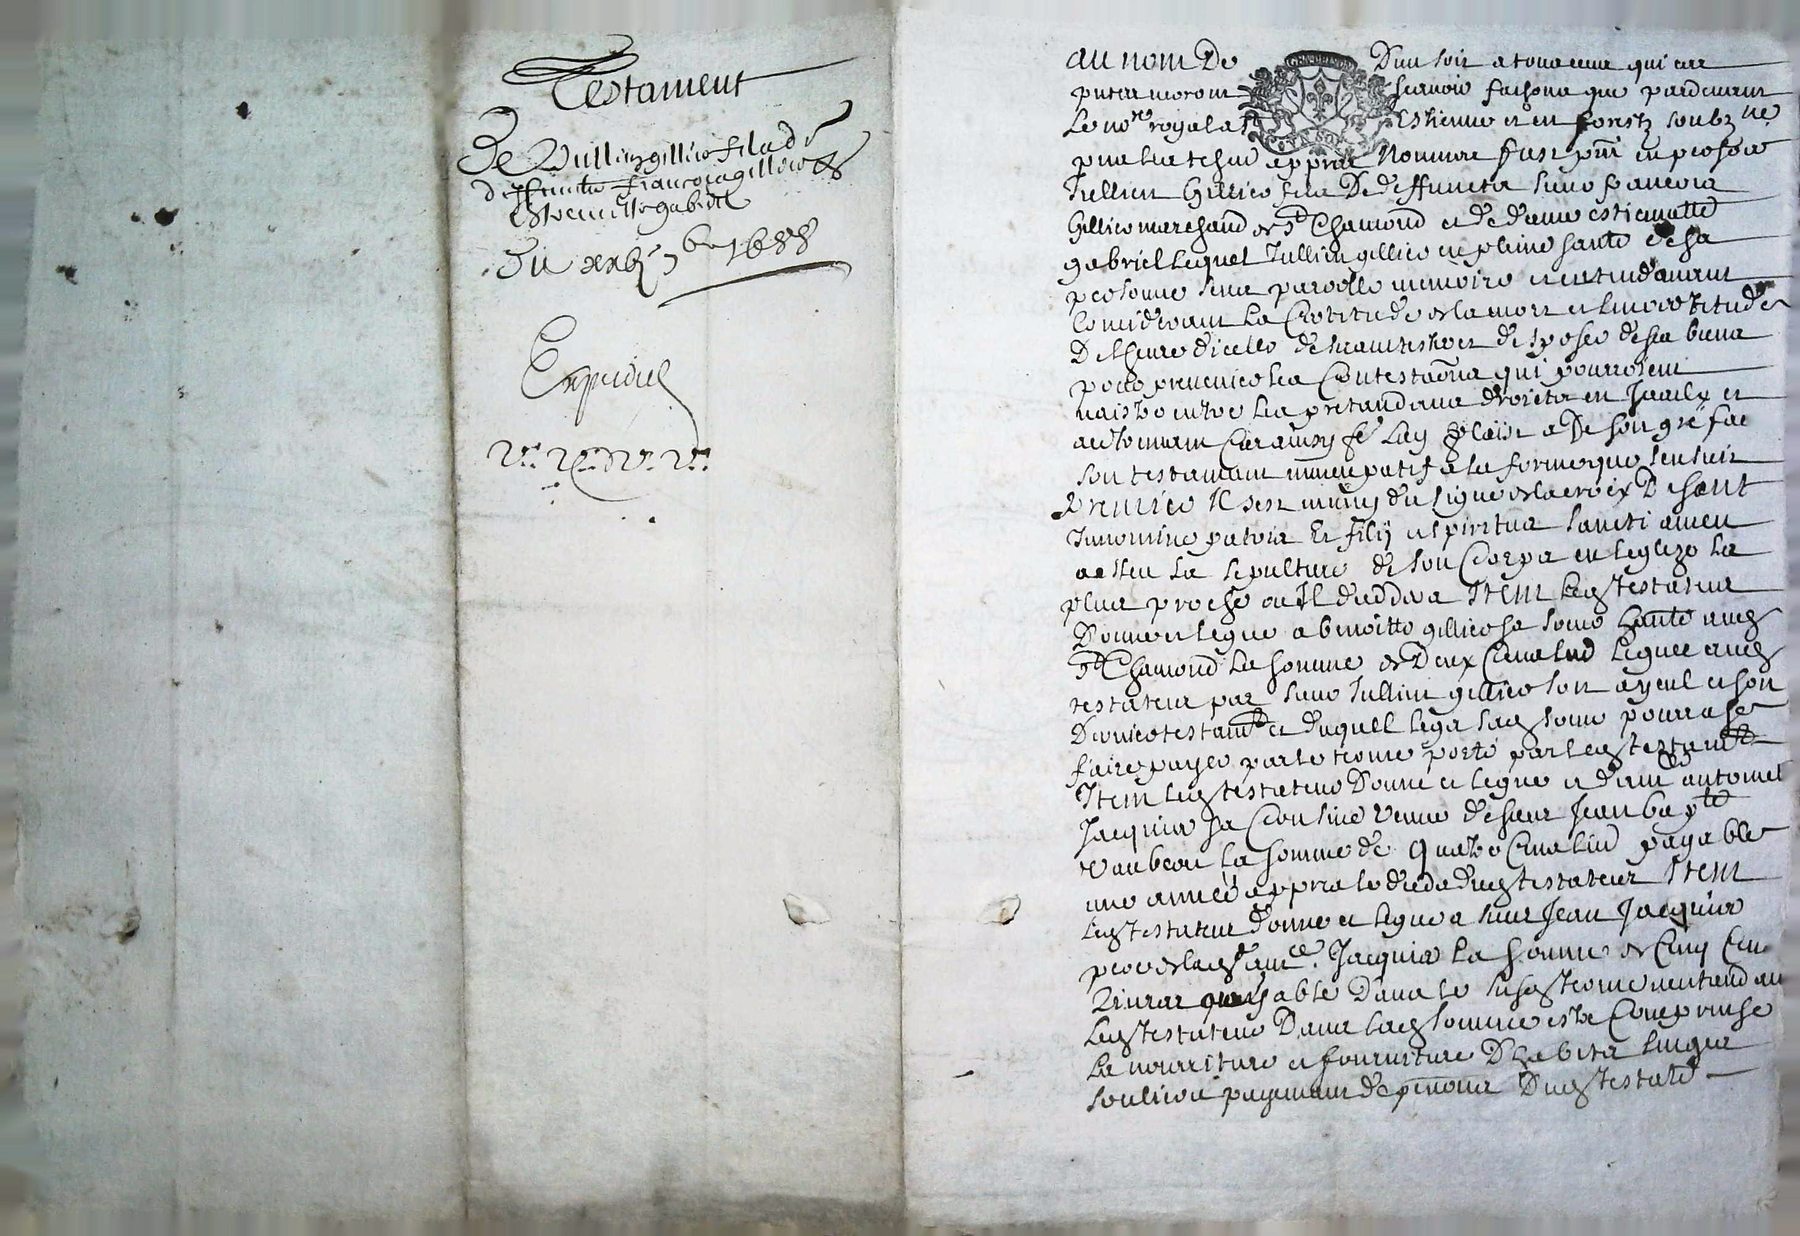 Testament
De Jullien gillier fils de
deffuncts françois gillier &
Estiennette gabriel
Du xxbj 7bre 1688
Expedié
Au nom De Dieu soit a tous ceux qui ces
pntes verront scavoir faisons que pardevant
Le nore royal a St Estienne et en foretz soubzne
pnts les tesm apprès Nommes fust pnt en personne
Jullien Gillier fils De deffuncts sieur françois
Gillier marchand de St Chamond et de dame estiennette
gabriel Lequel Jullien gillier en pleine santé de sa
personne sens parolle memoire et entendement
Considerant La Certitude de la mort et lincertitude
De lheure dicelle desirant disposer de ses biens
pour prevenir les Contestaons qui pourroient
naistre entre les pretendans droicts en Iceulx et
De son gré fait
son testament nuncupatif a la forme que sensuit
Premier Il sest muny du signe de la croix Disant
In nomine patris Et filij et spiritus sancti amen
a esleu La sepulture de son Corps en leglize La
plus proche ou Il decedera Item Ledt testateur
Donne et legue a benoitte gillier sa soeur
St Chamond La somme de Deux Cens leguee audt
testateur par sieur Jullien gillier son ayeul et son
Dernier testamt et duquel legat ladt soeur pourra se
faire payer par le terme porté par ledt testamt
Item ledt testateur Donne et legue a dame antoinette
Jacquier sa Cousine veuve de sieur Jean bapte
La somme de quatre Cens payable
une année apprès le deceds dudt testateur Item
Ledt testateur donne et legue a sieur Jean Jacquier
pere de ladt dame Jacquier La somme de Cinq Cens
Livres payable Dans le susdt terme entendant
Ledt testateur Dans ladt somme estre Comprinse
La nourriture et fourniture Dhabits linges
souliers payement de pensions Dudt testateur